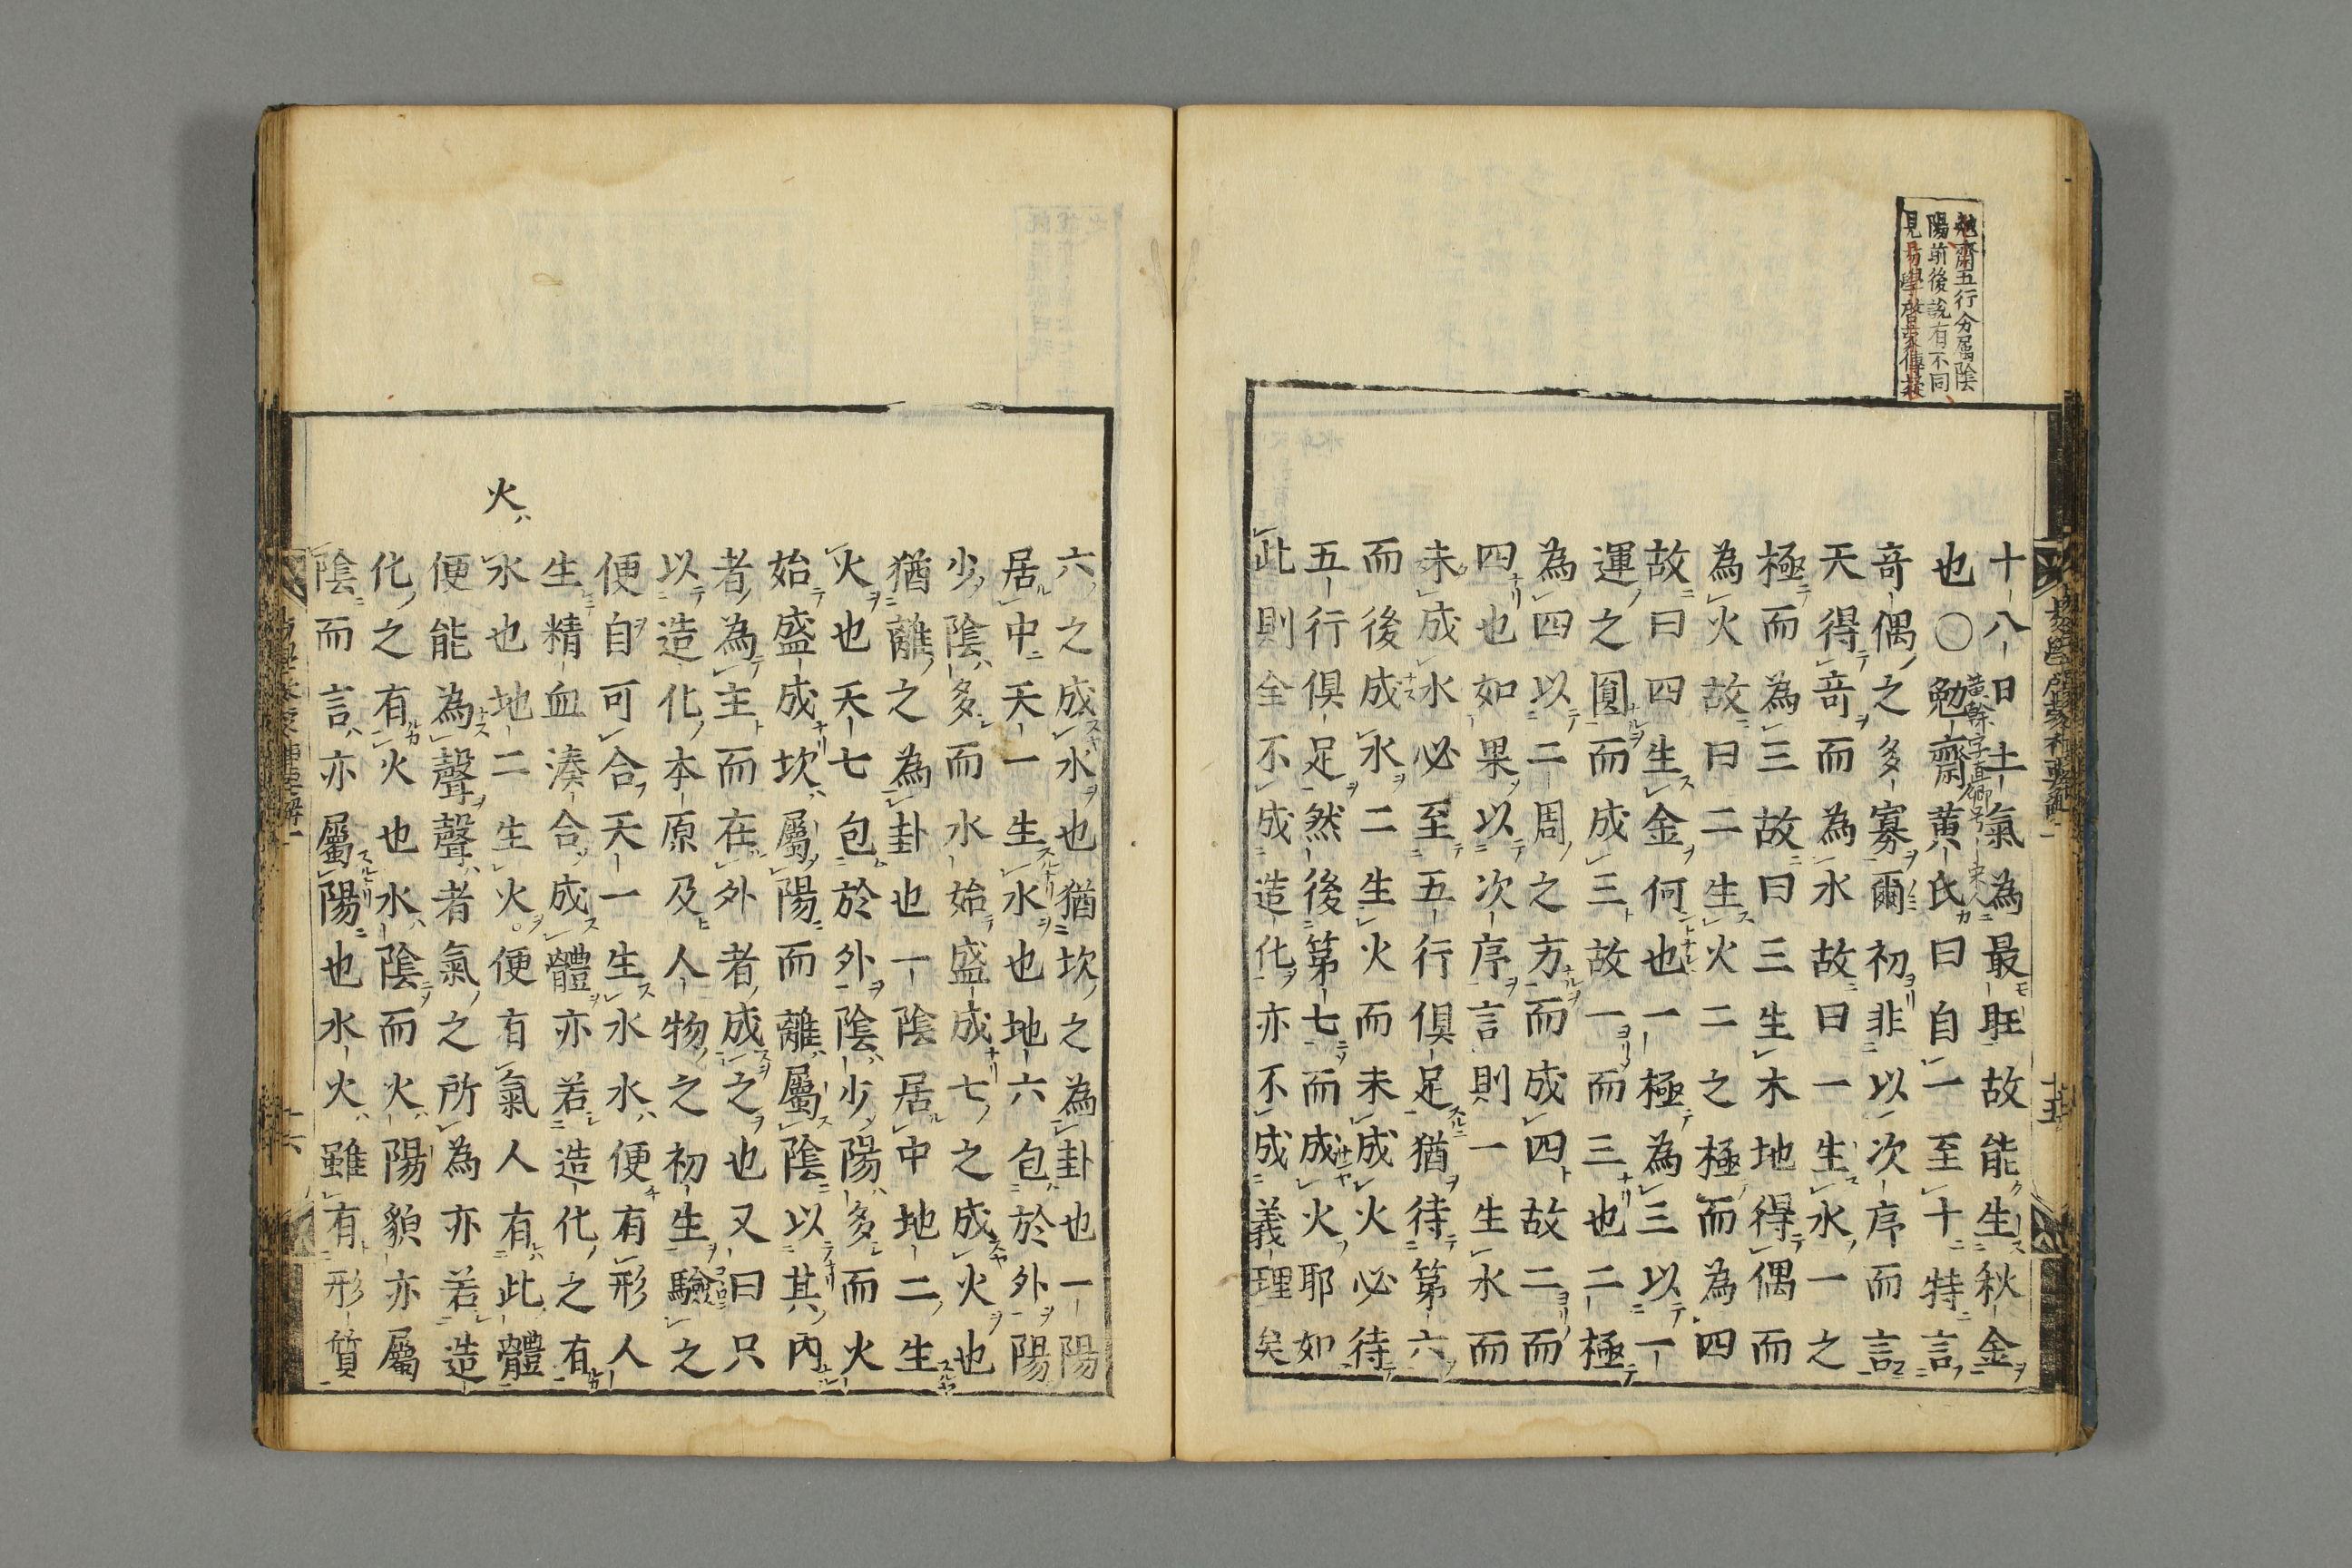 勉齋五行分属陰
陽前後説有不同
見易學啓蒙傳疑
十八日土氣為最旺故能生秋金
也〇勉齋黄氏曰自一至十特言
黄榦字直卿号宋人
竒偶之多寡爾初非以次序而言
天得竒而為水故曰一生水一之
極而為三故曰三生木地得偶而
為火故曰二生火二之極而為四
故曰四生金何也一極為三以一
運之圎而成三故一而三也二極
為四以二周之方而成四故二而
四也如果以次序言則一生水而
未成水必至五行俱足猶待第六
而後成水二生火而未成火必待
五行俱足然後第七而成火耶如
此則全不成造化亦不成義理矣
十五
六之成水也猶坎之為卦也一陽
居中天一生水也地六包於外陽
少陰多而水始盛成七之成火也
猶離之為卦也一陰居中地二生
火也天七包於外陰少陽多而火
始盛成坎屬陽而離屬陰以其内
者為主而在外者成之也又曰只
以造化本原及人物之初生驗之
便自可合天一生水水便有形人
生精血湊合成體亦若造化之有
水也地二生火便有氣人有此體
便能為聲聲者氣之所為亦若造
化之有火也水陰而火陽貌亦屬
陰而言亦屬陽也水火雖有形質
火ハ
十六